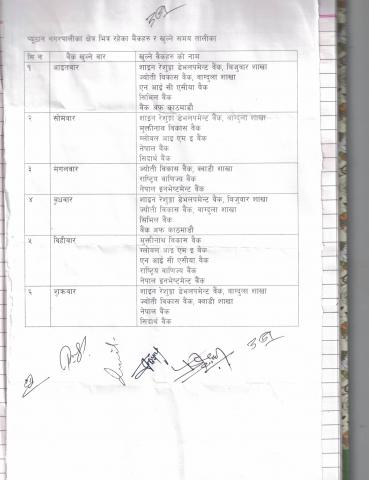 प्यूठान नगरपालीका क्षेत्र भित्र रहेका बैंकहरु र खुल्ने समय तालीका
सि न बैंक खुल्ने बार खुल्ने बैंकहरु को नाम
१ आइतबार शाइन रेशुङ्गा डेभलपमेन्ट बैंक, बिजुवार शाखा
ज्योती विकास बैंक, बाग्दुला शाखा
एन आई सी एसीया बैंक
सिभिल बैंक
बैंक अफ काठमाडौं
२ सोमबार शाइन रेशुङ्गा डेभलपमेन्ट बैंक, बाग्दुला शाखा
मुक्तीनाथ विकास बैंक
ग्लोबल आइ एम इ बैंक
नेपाल बैंक
सिद्दार्थ बैंक
३ मंगलबार ज्योती विकास बैंक, क्वाडी शाखा
राष्ट्रिय बाणिज्य बैंक
नेपाल इनभेष्टमेन्ट बैंक
४ बुधबार शाइन रेशुङ्गा डेभलपमेन्ट बैंक, बिजुवार शाखा
ज्योती विकास बैंक, बाग्दुला शाखा
सिभिल बैंक
बैंक अफ काठमाडौं
५ बिहीबार मुक्तीनाथ विकास बैंक
ग्लोबल आइ एम इ बैंक
एन आई सी एसीया बैंक
राष्ट्रिय बाणिज्य बैंक
नेपाल इनभेष्टमेन्ट बैंक
६ शुक्रबार शाइन रेशुङ्गा डेभलपमेन्ट बैंक, बाग्दुला शाखा
ज्योती विकास बैंक, क्वाडी शाखा
नेपाल बैंक
सिद्दार्थ बैंक